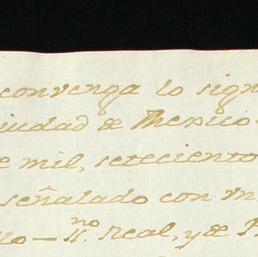 convenga lo sign
iudad de Mexico
e mil, seteciento
señalado con m
lo - 11.no real, y de P